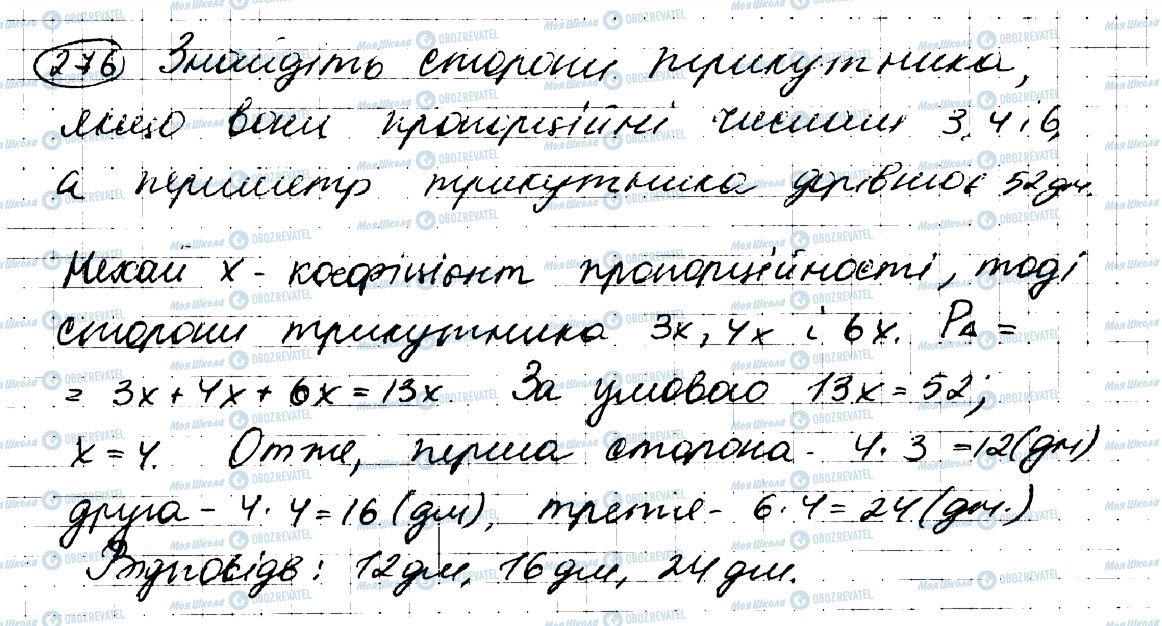 276 Знайдіть сторони трикутника,
якщо вони пропорційні числам 3, 4 і 6,
а периметр трикутника дорівнює 52 дм.
Нехай x - коефіцієнт пропорційності, тоді
сторони трикутника 3x, 4x і 6x. P△ =
= 3x + 4x + 6x = 13x. За умовою 13x = 52;
x = 4. Отже, перша сторона - 4 · 3 = 12 (дм)
друга - 4 · 4 = 16 (дм), третя - 6 · 4 = 24 (дм.)
Відповідь: 12 дм, 16 дм, 24 дм.